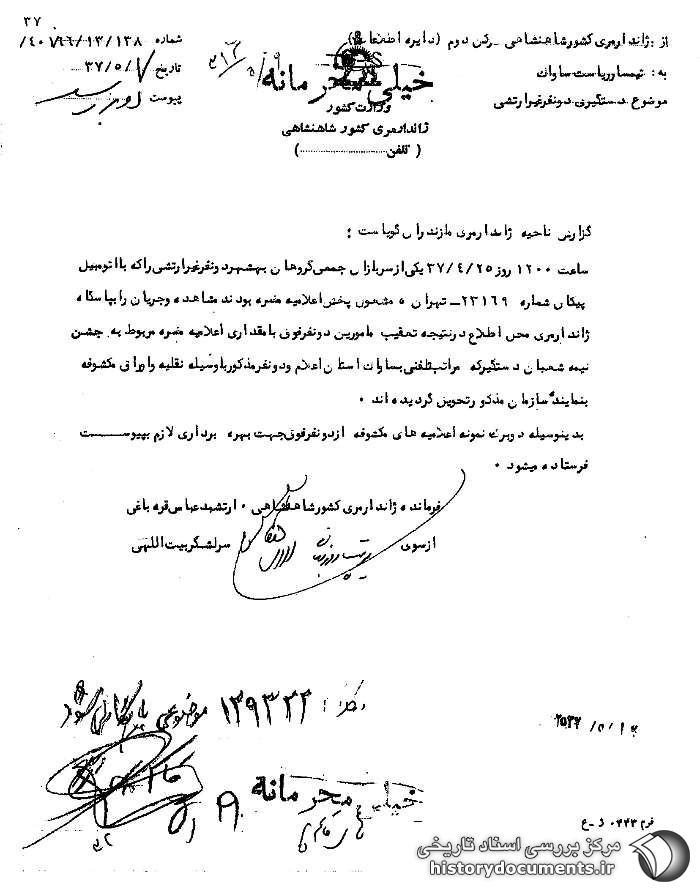 ۳۷
از: ژاندارمری کشور شاهنشاهی - رکن دوم (دایره اطلاعات)
شماره ۴۰۱/۶۶/۱۳/۱۳۸/
به: تیمسار ریاست ساواک
تاریخ ۳۷/۵/۷
موضوع دستگیری دو نفر غیر ارتشی
پیوست دو برگ
خیلی محرمانه
وزارت کشور
ژاندارمری کشور شاهنشاهی
(تلفن ....................)
گزارش ناحیه ژاندارمری مازندران گویاست :
ساعت ۱۲۰۰ روز ۳۷/۴/۲۵ یکی از سربازان جمعی گروهان بهشهر دو نفر غیر ارتشی را که با اتومبیل
پیکان شماره ۲۳۱۶۹ - تهران ه مشغول پخش اعلامیه مضره بودند مشاهده و جریان را بپاسگاه
ژاندارمری محل اطلاع در نتیجه تعقیب مامورین دو نفر فوق با مقداری اعلامیه مضره مربوط به جشن
نیمه شعبان دستگیر که مراتب تلفنی بساواک استان اعلام و دو نفر مذکور با وسیله نقلیه و اوراق مکشوفه
بنماینده سازمان مذکور تحویل گردیده اند .
بدینوسیله دو برگ نمونه اعلامیه های مکشوفه از دو نفر فوق جهت بهره برداری لازم بپیوست
فرستاده میشود .
فرمانده ژاندارمری کشور شاهنشاهی . ارتشبد عباس قره باغی
از سوی سرلشگر بیت اللهی
۱۳۹۳۳۳ موضوعی بایگانی شود
خیلی محرمانه
فرم ۰۴۴۳ د-ع
مرکز بررسی اسناد تاریخی
historydocuments.ir